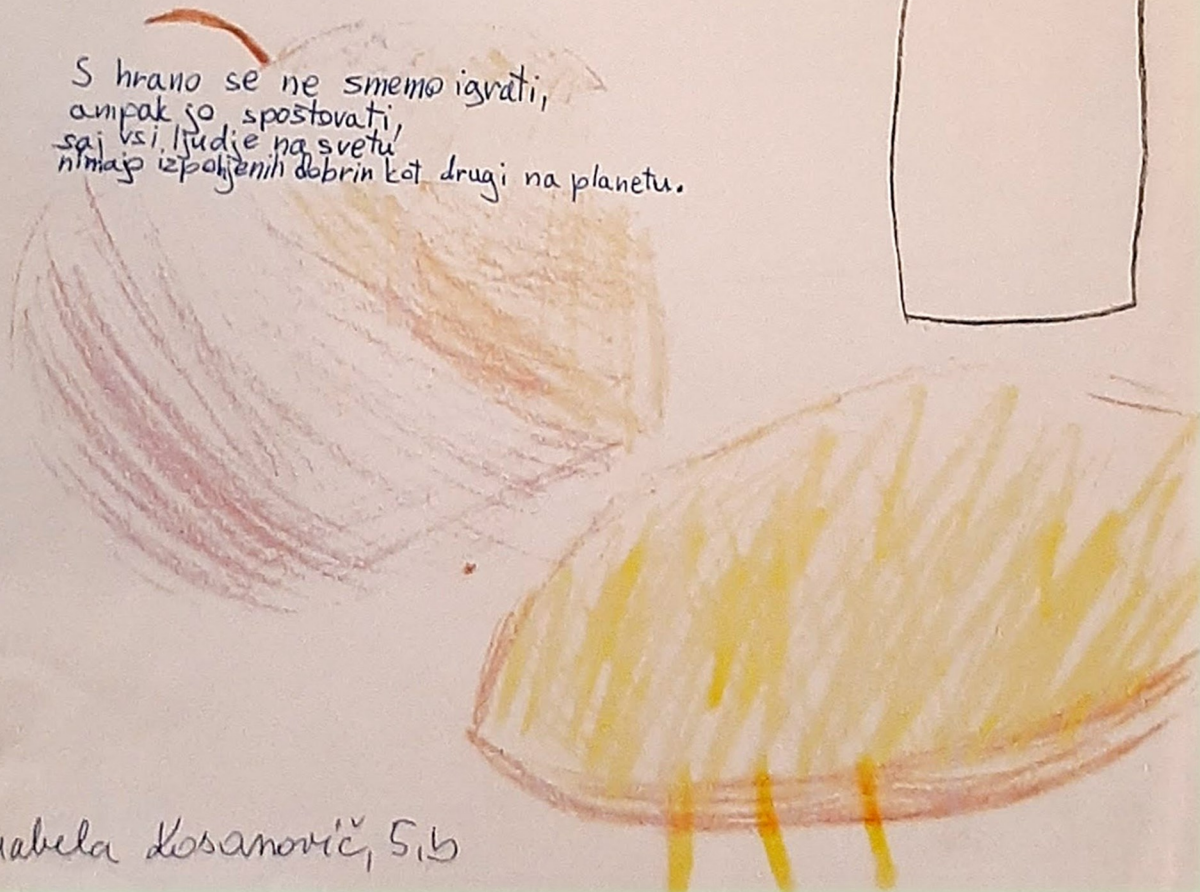 S hrano se ne smemo igrati,
ampak jo spoštovati,
saj vsi ljudje na svetu
nimajo izpolnjenih dobrin kot drugi na planetu.
Kosanovič, 5,b